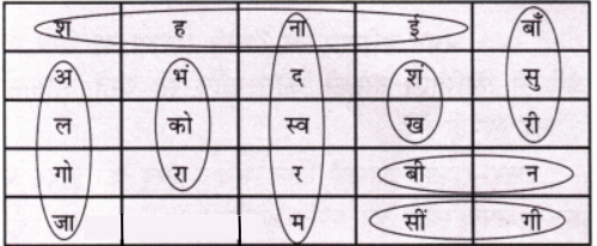 श ह ना ई बाँ
अ भं द शं सु
ल को स्व ख री
गो रा र बी न
जा म सीं गी